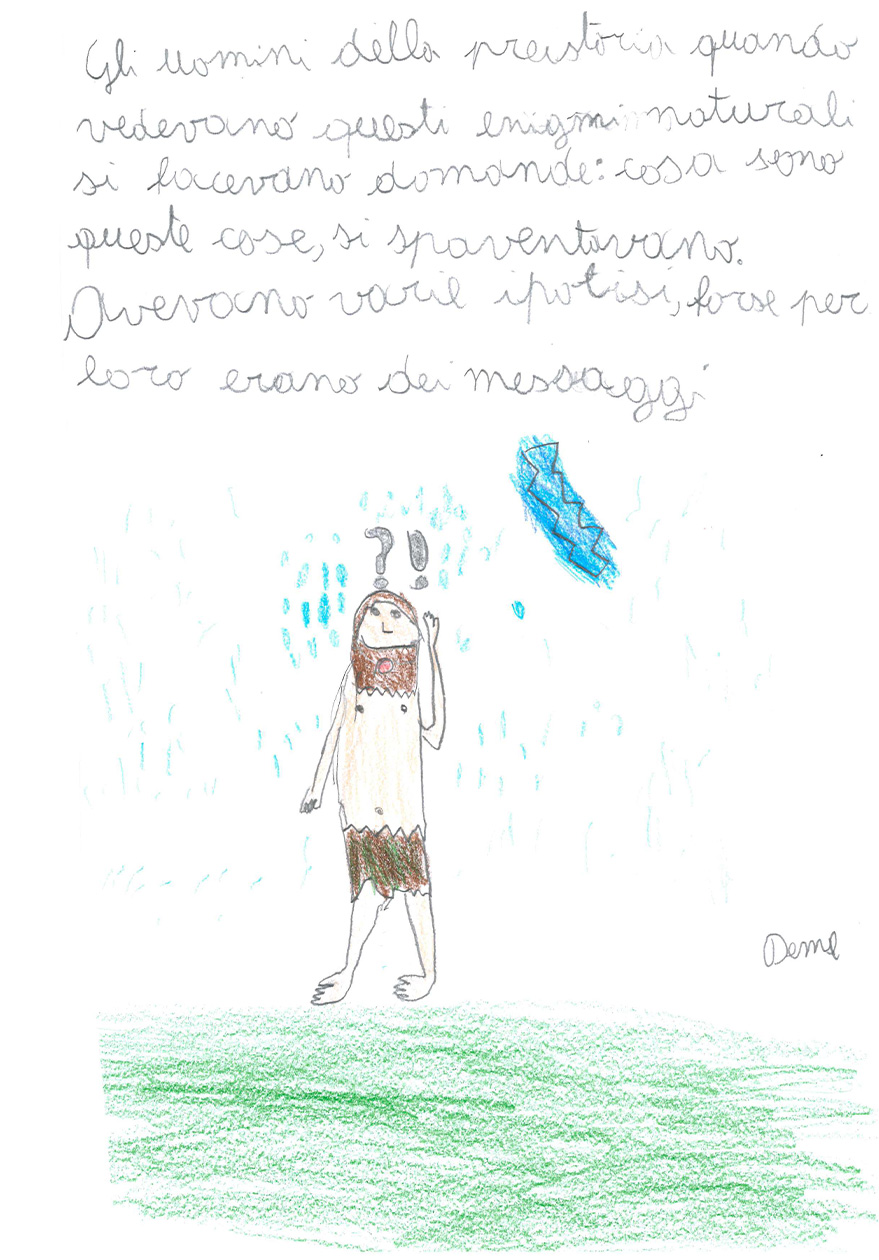 Gli uomini della preistoria quando
vedevano questi enigmi naturali
si facevano domande: cosa sono
queste cose, si spaventavano.
Avevano varie ipotisi, forse per
loro erano dei messaggi
?!